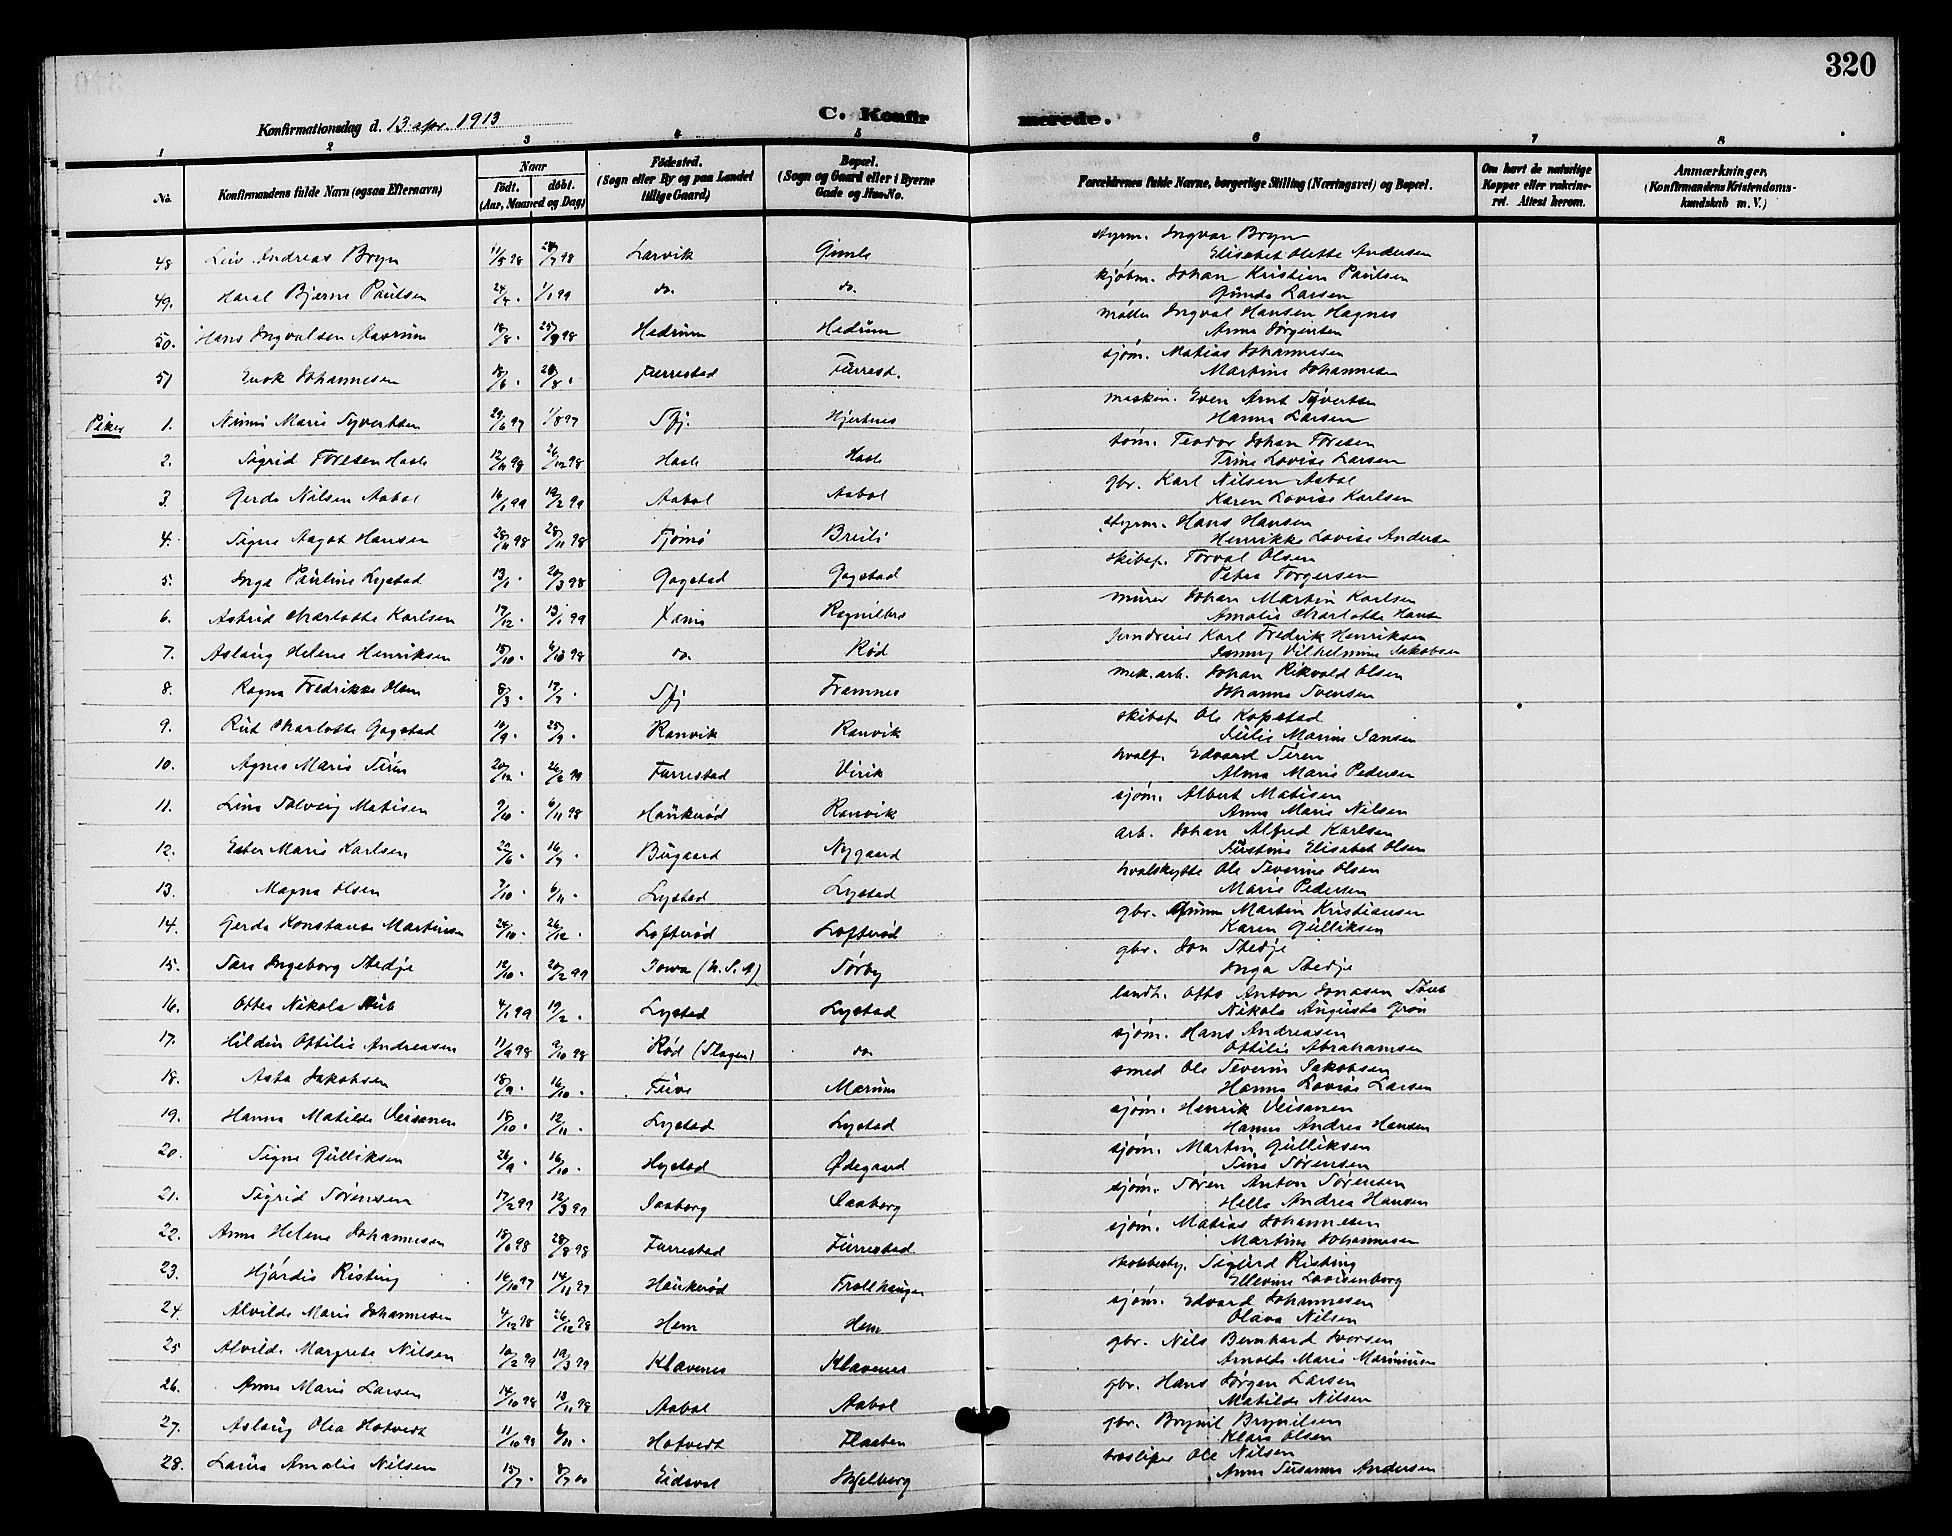 320
Konfirmationsdag d. 13 apr. 1913
C. Konfirmerede.
1 2 3 4 5 6 7 8
No.
Konfirmandens fulde Navn (ogsaa Efternavn)
Naar
født. døbt.
(Aar, Maaned og Dag)
Fødested.
(Sogn eller By og paa Landet
tillige Gaard)
Bopæl.
(Sogn og Gaard eller i Byerne
Gade og Hus-No.
Forældrenes fulde Navne, borgerlige Stilling (Næringsvei) og Bopæl.
Om havt de naturlige
Kopper eller vakcine-
ret. Attest herom.
Anmærkninger.
(Konfirmandens Kristendoms-
kundskab m. V.)
48 Leiv Andreas Bryn 11/5 98 24/7 98 Larvik Gimle styrm. Ingvar Bryn
Elisabet Olette Andersen
49. Haral Bjerne Paulsen 24/4 - 1/1 99 do. do. kjøbm. Johan Kristian Paulsen
Gunda Larsen
50. Hans Ingvalsen Aavrum 18/8 - 25/9 98 Hedrum Hedrum møller Ingval Hansen Hagnes
Anna Jørgensen
51 Enok Johannesen 18/6 - 28/8 - Furrestad Furrest. sjøm. Matias Johannesen
Martine Johannesen
Piker 1. Mimi Marie Syvertsen 29/6 97 1/8 97 Sfj. Hjertnes maskin. Even Arnt Syvertsen
Hanna Larsen
2. Sigrid Toresen Hasle 12/11 98 26/12 98 Hasle Hasle tøm. Teodor Johan Toresen
Trine Lovise Larsen
3. Gerda Nilsen Aabol 16/1 99 19/2 99 Aabol Aabol gbr. Karl Nilsen Aabol
Karen Lovise Karlsen
4. Signe Aagot Hansen 28/9 98 28/11 98 Tjømø Breili styrm. Hans Hansen
Henrikke Lovise Anderse
5. Inga Pauline Lystad 13/1 - 20/3 98 Gogstad Gogstad skibsf. Torval Olsen
Petra Torgersen
6. Astrid Charlotte Karlsen 17/12 - 13/1 99 Ragnilbro murer Johan Martin Karlsen
Amalie Charlotte Hansen
7. Aslaug Helene Henriksen 15/10 - 6/10 98 do. Rød Karl Fredrik Henriksen
Fanny Vilhelmine Jakobsen
8. Ragna Fredrikke Olsen 8/3 - 17/7 - Sfj Framnes mek. arb. Johan Rikvald Olsen
Johanna Svensen
9. Rut Charlotte Gogstad 10/9 - 25/9 - Ranvik Ranvik skibsf. Ole Kopstad
Julie Marine Jansen
10. Agnes Marie Siren 20/12 - 26/2 99 Furrestad Virik hvalf. Edvard Siren
Alma Marie Pedersen
11. Lina Solveig Matisen 9/10 - 6/11 98 Haukerød Ranvik sjøm. Albert Matisen
Anna Marie Nilsen
12. Ester Marie Karlsen 22/6 - 16/7 - Bugaard Nygaard arb. Johan Alfred Karlsen
Justine Elisabet Olsen
13. Magna Olsen 7/10 - 6/11 - Lystad Lystad hvalskytte Ole Severine Olsen
Marie Pedersen
14. Gerda Konstanse Martinsen 24/10 - 26/12 - Lofterød Lofterød gbr. Martin Kristiansen
Karen Gulliksen
15. Sara Ingeborg Stedje 12/10 - 20/2 99 Iowa (U.S.A) Sørby gbr. Jon Stedje
Inga Stedje
16. Ottea Nikola Stub 4/1 99 19/2 - Lystad Lystad landh. Otto Anton Jonasen Stub
Nikola Augusta Grøn
17. Hildur Ottilie Andreasen 11/9 98 9/10 98 Rød (Slagen) do sjøm. Hans Andreasen
Ottilie Abrahamsen
18. Asta Jakobsen 18/9 - 16/10 - Tuve Marum smed Ole Severin Jakobsen
Hanna Lovise Larsen
19. Hanna Matilde Veisanen 18/10 - 12/11 - Lystad Lystad sjøm. Henrik Veisanen
Hanna Andrea Hansen
20. Signe Gulliksen 26/9 - 16/10 - Hystad Ødegaard sjøm. Martin Gulliksen
Tina Sørensen
21. Sigrid Sørensen 17/2 99 12/3 99 Daaborg Daaborg sjøm. Søren Anton Sørensen
Helle Andrea Hansen
22. Anna Helene Johannesen 18/6 98 28/8 98 Furrestad Furrestad sjøm. Matias Johannesen
Martine Johannesen
23. Hjørdis Risting 16/10 97 14/11 97 Haukerød Trollhaugen skolebesty. Sigurd Risting
Ellevine Lovisenborg
24. Alvilde Marie Johannesen 4/12 98 26/12 98 Hem Hem sjøm. Edvard Johannesen
Olava Nilsen
25 Alvilde Margrete Nilsen 10/2 99 19/3 99 Klavenes Klavenes gbr. Nils Bernhard Iversen
Arnolda Marie Mariniusen
26. Anna Marie Larsen 14/10 98 13/11 98 Aabol Aabol gbr. Hans Jørgen Larsen
Matilde Nilsen
27. Aslaug Olea Hotvedt 11/10 99 6/11 - Hotvedt Flaaten gbr. Brynil Brynilsen
Klara Olsen
28. Laura Amalie Nilsen 15/7 - 8/7 00 Eidsvol Skjelberg træsliper Ole Nilsen
Anna Susanna Andersen